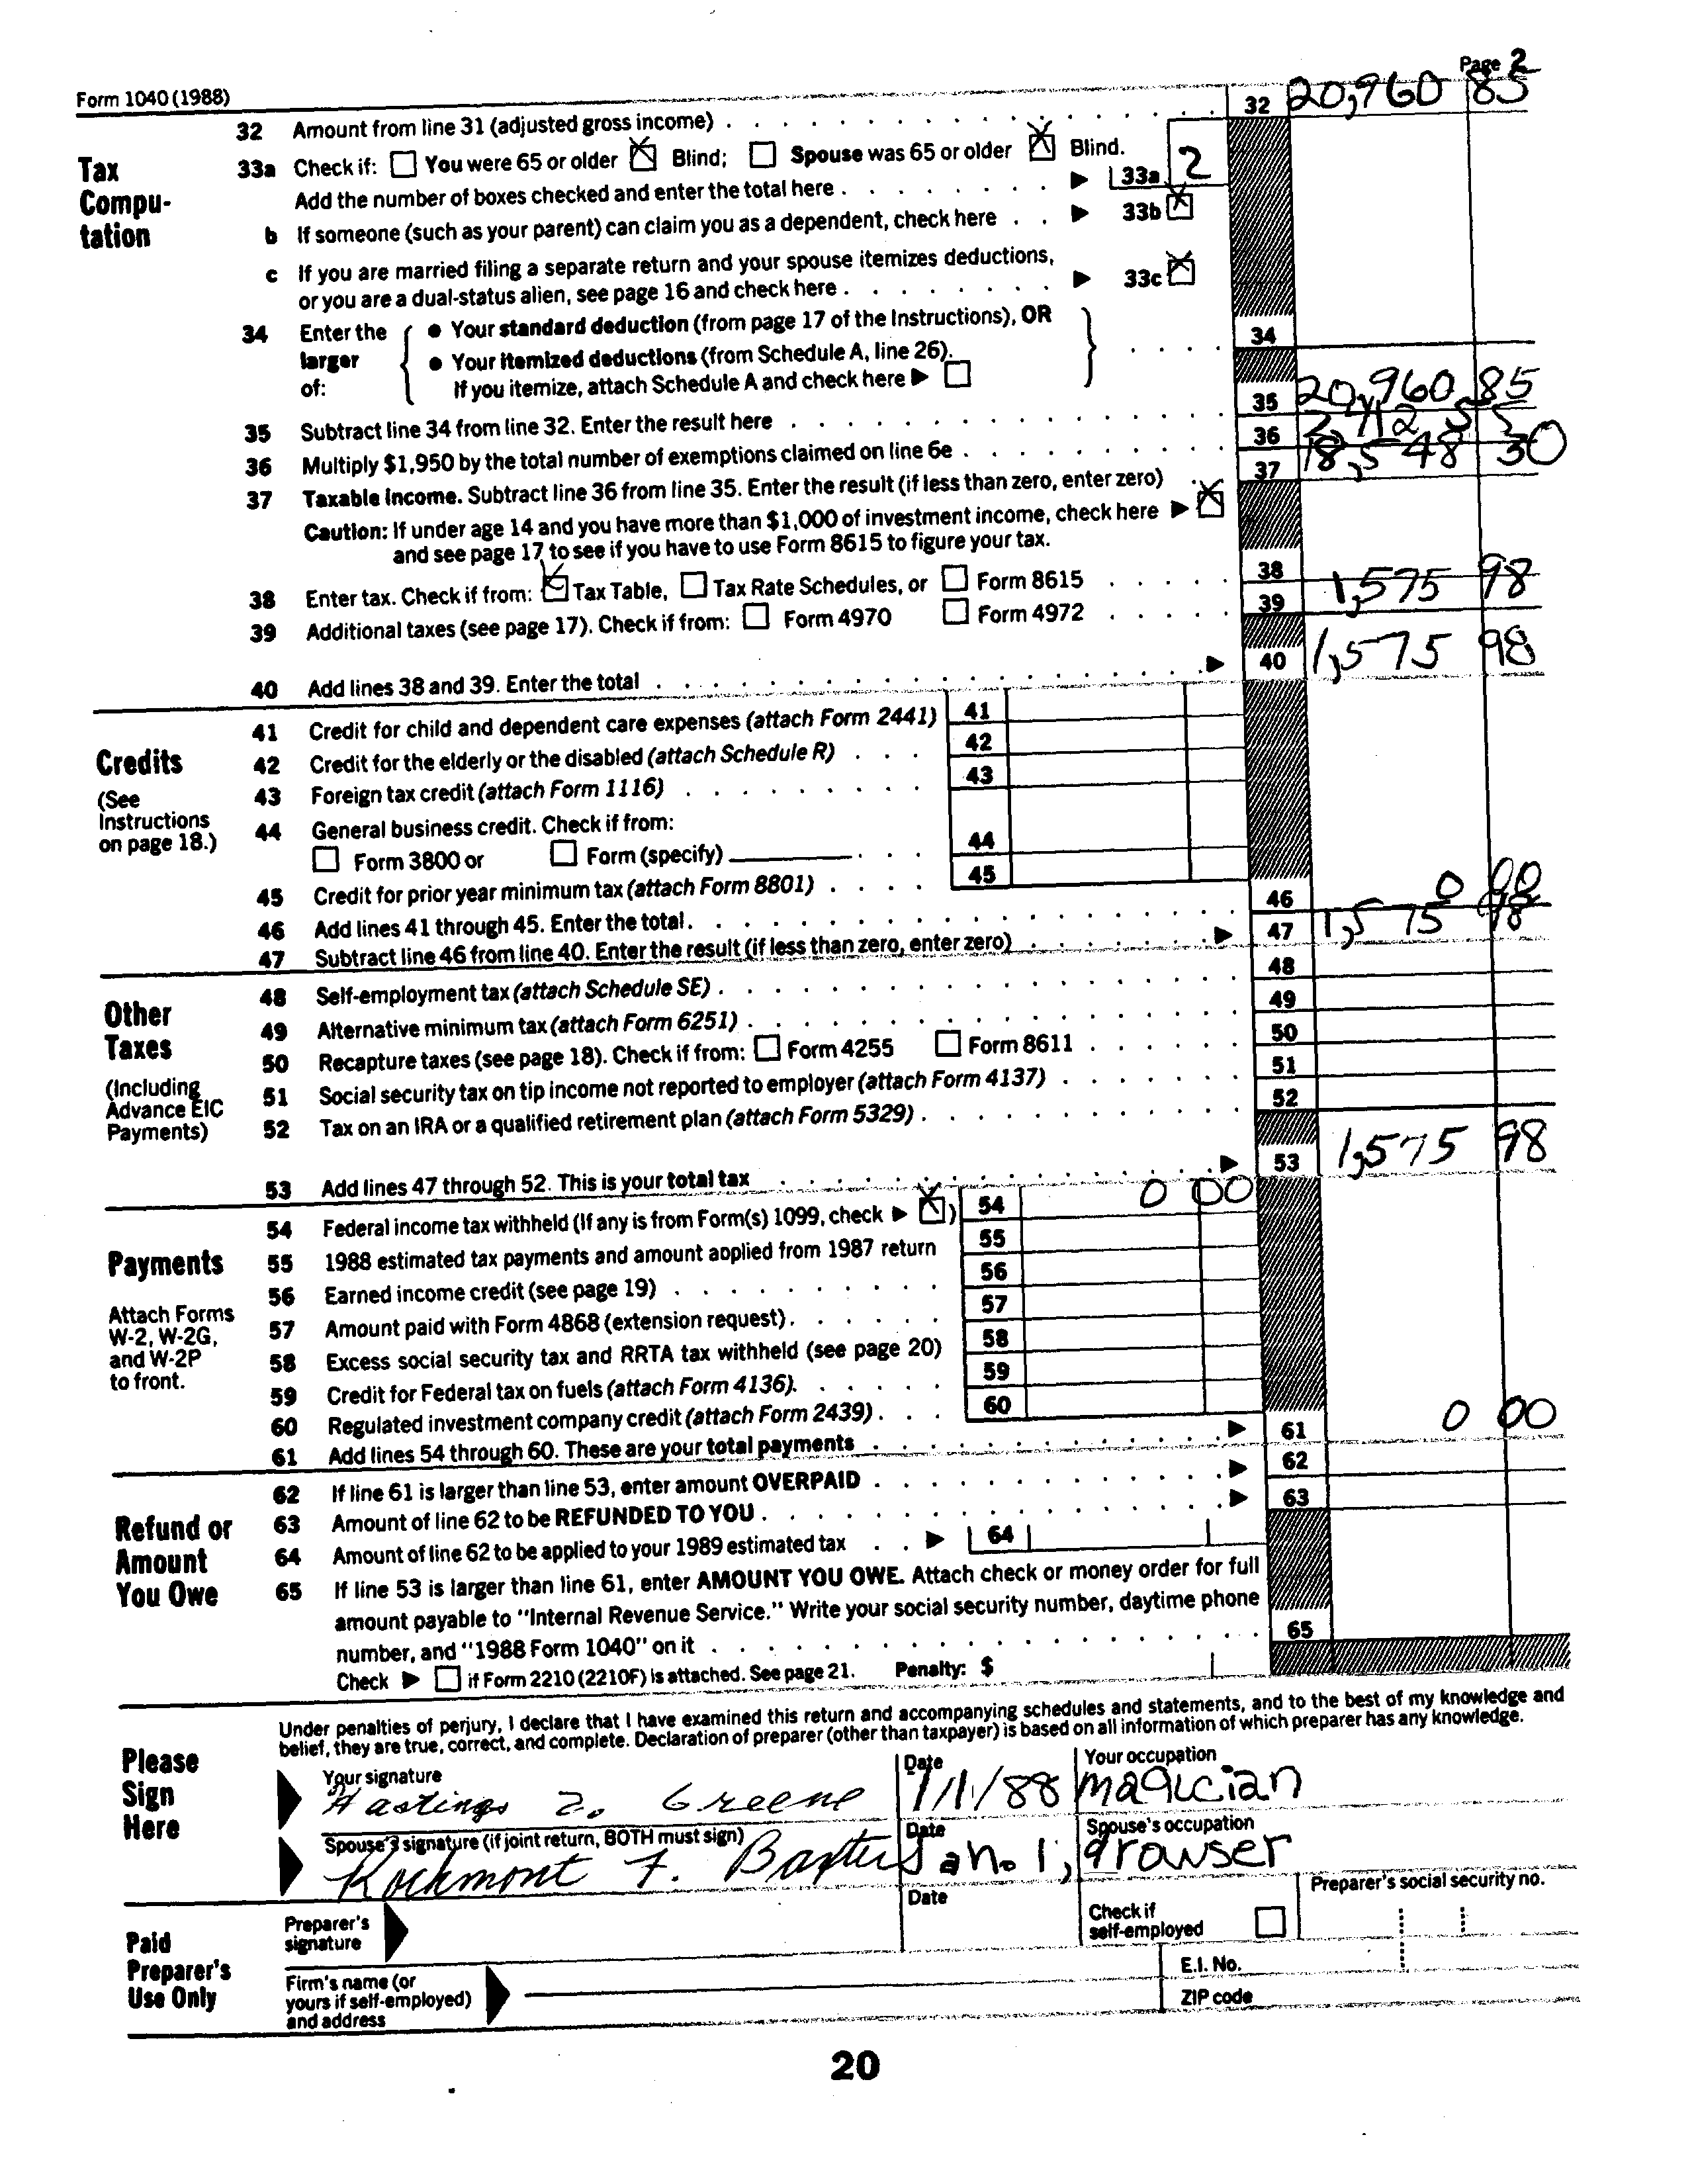 Page 2
Form 1040 (1988)
32 Amount from line 31 (adjusted gross income) 32 20,960 85
Tax Computation
33a Check if: You were 65 or older X Blind; Spouse was 65 or older X Blind.
Add the number of boxes checked and enter the total here 33a 2
b If someone (such as your parent) can claim you as a dependent, check here 33b X
c If you are married filing a separate return and your spouse itemizes deductions,
or you are a dual-status alien, see page 16 and check here 33c X
34 Enter the larger of: • Your standard deduction (from page 17 of the Instructions), OR
• Your itemized deductions (from Schedule A, line 26).
If you itemize, attach Schedule A and check here 34
35 Subtract line 34 from line 32. Enter the result here 35 20,960 85
36 Multiply $1,950 by the total number of exemptions claimed on line 6e 36 2,412 55
37 Taxable income. Subtract line 36 from line 35. Enter the result (if less than zero, enter zero) 37 18,548 30
Caution: If under age 14 and you have more than $1,000 of investment income, check here X
and see page 17 to see if you have to use Form 8615 to figure your tax.
38 Enter tax. Check if from: X Tax Table, Tax Rate Schedules, or Form 8615 38 1,575 98
39 Additional taxes (see page 17). Check if from: Form 4970 Form 4972 39
40 Add lines 38 and 39. Enter the total 40 1,575 98
Credits
(See Instructions on page 18.)
41 Credit for child and dependent care expenses (attach Form 2441) 41
42 Credit for the elderly or the disabled (attach Schedule R) 42
43 Foreign tax credit (attach Form 1116) 43
44 General business credit. Check if from:
Form 3800 or Form (specify) 44
45 Credit for prior year minimum tax (attach Form 8801) 45
46 Add lines 41 through 45. Enter the total. 46 0 00
47 Subtract line 46 from line 40. Enter the result (if less than zero, enter zero) 47 1,575 98
Other Taxes
(Including Advance EIC Payments)
48 Self-employment tax (attach Schedule SE) 48
49 Alternative minimum tax (attach Form 6251) 49
50 Recapture taxes (see page 18). Check if from: Form 4255 Form 8611 50
51 Social security tax on tip income not reported to employer (attach Form 4137) 51
52 Tax on an IRA or a qualified retirement plan (attach Form 5329) 52
53 Add lines 47 through 52. This is your total tax 53 1,575 98
Payments
Attach Forms W-2, W-2G, and W-2P to front.
54 Federal income tax withheld (If any is from Form(s) 1099, check X) 54 0 00
55 1988 estimated tax payments and amount applied from 1987 return 55
56 Earned income credit (see page 19) 56
57 Amount paid with Form 4868 (extension request) 57
58 Excess social security tax and RRTA tax withheld (see page 20) 58
59 Credit for Federal tax on fuels (attach Form 4136). 59
60 Regulated investment company credit (attach Form 2439) 60
61 Add lines 54 through 60. These are your total payments 61 0 00
Refund or Amount You Owe
62 If line 61 is larger than line 53, enter amount OVERPAID 62
63 Amount of line 62 to be REFUNDED TO YOU 63
64 Amount of line 62 to be applied to your 1989 estimated tax 64
65 If line 53 is larger than line 61, enter AMOUNT YOU OWE. Attach check or money order for full
amount payable to "Internal Revenue Service." Write your social security number, daytime phone
number, and "1988 Form 1040" on it 65
Check if Form 2210 (2210F) is attached. See page 21. Penalty: $
Please Sign Here
Under penalties of perjury, I declare that I have examined this return and accompanying schedules and statements, and to the best of my knowledge and
belief, they are true, correct, and complete. Declaration of preparer (other than taxpayer) is based on all information of which preparer has any knowledge.
Your signature Date Your occupation
Hastings Z. Greene 1/1/88 magician
Spouse's signature (if joint return, BOTH must sign) Date Spouse's occupation
Rockmont F. Baxter Jan. 1, growser
Paid Preparer's Use Only
Preparer's signature Date Check if self-employed Preparer's social security no.
Firm's name (or yours if self-employed) and address E.I. No.
ZIP code
20